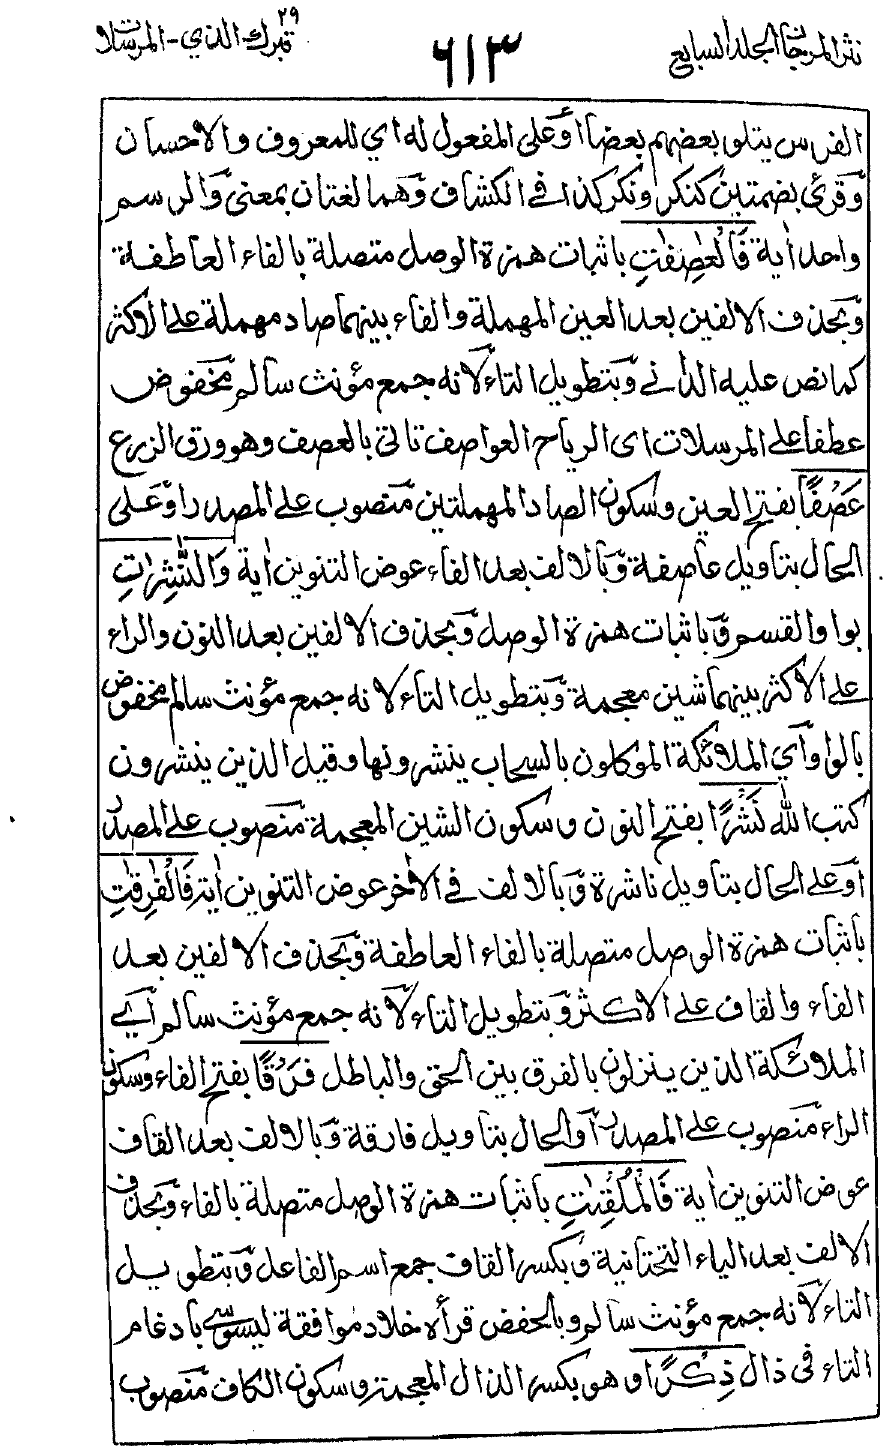 نثر المرجان المجلد السابع
٦١٣
٢٩
تبرك الذي - المرسلات
الفرس يتلو بعضهم بعضا اوعلى المفعول له اي للمعروف والاحسان
وقرئ بضمتين كنكر ونكر كذا في الكشاف وهما لغتان بمعنى والرسم
واحد اية فَالْعٰصِفٰتِ باثبات همزة الوصل متصلة بالفاء العاطفة
وبحذف الالفين بعد العين المهملة والفاء بينهما صاد مهملة على الاكثر
كما نص عليه الداني وبتطويل التاء لانه جمع مؤنث سالم مخفوض
عطفا على المرسلات اى الرياح العواصف تاتي بالعصف وهو ورق الزرع
عَصْفًا بفتح العين وسكون الصاد المهملتين منصوب على المصدر اوعلى
الحال بتاويل عاصفة وبالالف بعد الفاء عوض التنوين اية وَالنّٰشِرٰتِ
بواو القسم وباثبات همزة الوصل وبحذف الالفين بعد النون والراء
على الاكثر بينهما شين معجمة وبتطويل التاء لانه جمع مؤنث سالم مخفوض
بالواو اي الملائكة الموكلون بالسحاب ينشرونها وقيل الذين ينشرون
كتب الله نَشْرًا بفتح النون وسكون الشين المعجمة منصوب على المصدر
اوعلى الحال بتاويل ناشرة وبالالف في الاخر عوض التنوين اية فَالْفٰرِقٰتِ
باثبات همزة الوصل متصلة بالفاء العاطفة وبحذف الالفين بعد
الفاء والقاف على الاكثر وبتطويل التاء لانه جمع مؤنث سالم اي
الملائكة الذين ينزلون بالفرق بين الحق والباطل فَرْقًا بفتح الفاء وسكون
الراء منصوب على المصدر اوالحال بتاويل فارقة وبالالف بعد القاف
عوض التنوين اية فَالْمُلْقِيٰتِ باثبات همزة الوصل متصلة بالفاء وبحذف
الالف بعد الياء التحتانية وبكسر القاف جمع اسم الفاعل وبتطويل
التاء لانه جمع مؤنث سالم وبالخفض قرأه خلاد موافقة ليسوسي بادغام
التاء في ذال ذِكْرًا وهو بكسر الذال المعجمة وسكون الكاف منصوب